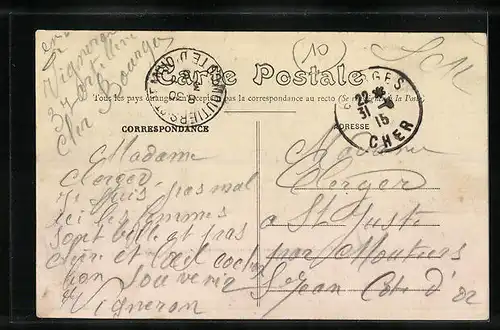 Vigneron
37 arti
Cher Bourges
(10)
S M
Carte Postale
Tous les pays étrangers n'acceptent pas la correspondance au recto (Se renseigner à la Poste)
CORRESPONDANCE
ADRESSE
MOUTIERS
CÔTE D'OR
BOURGES
22
31 15
CHER
Madame
Clerger
Je suis pas mal
ici les femmes
sont belle et pas
chère et l'œil cochon
bon souvenir
Vigneron
Madame
Clerger
a St Juste
par Moutiers
St Jean Cote d'or